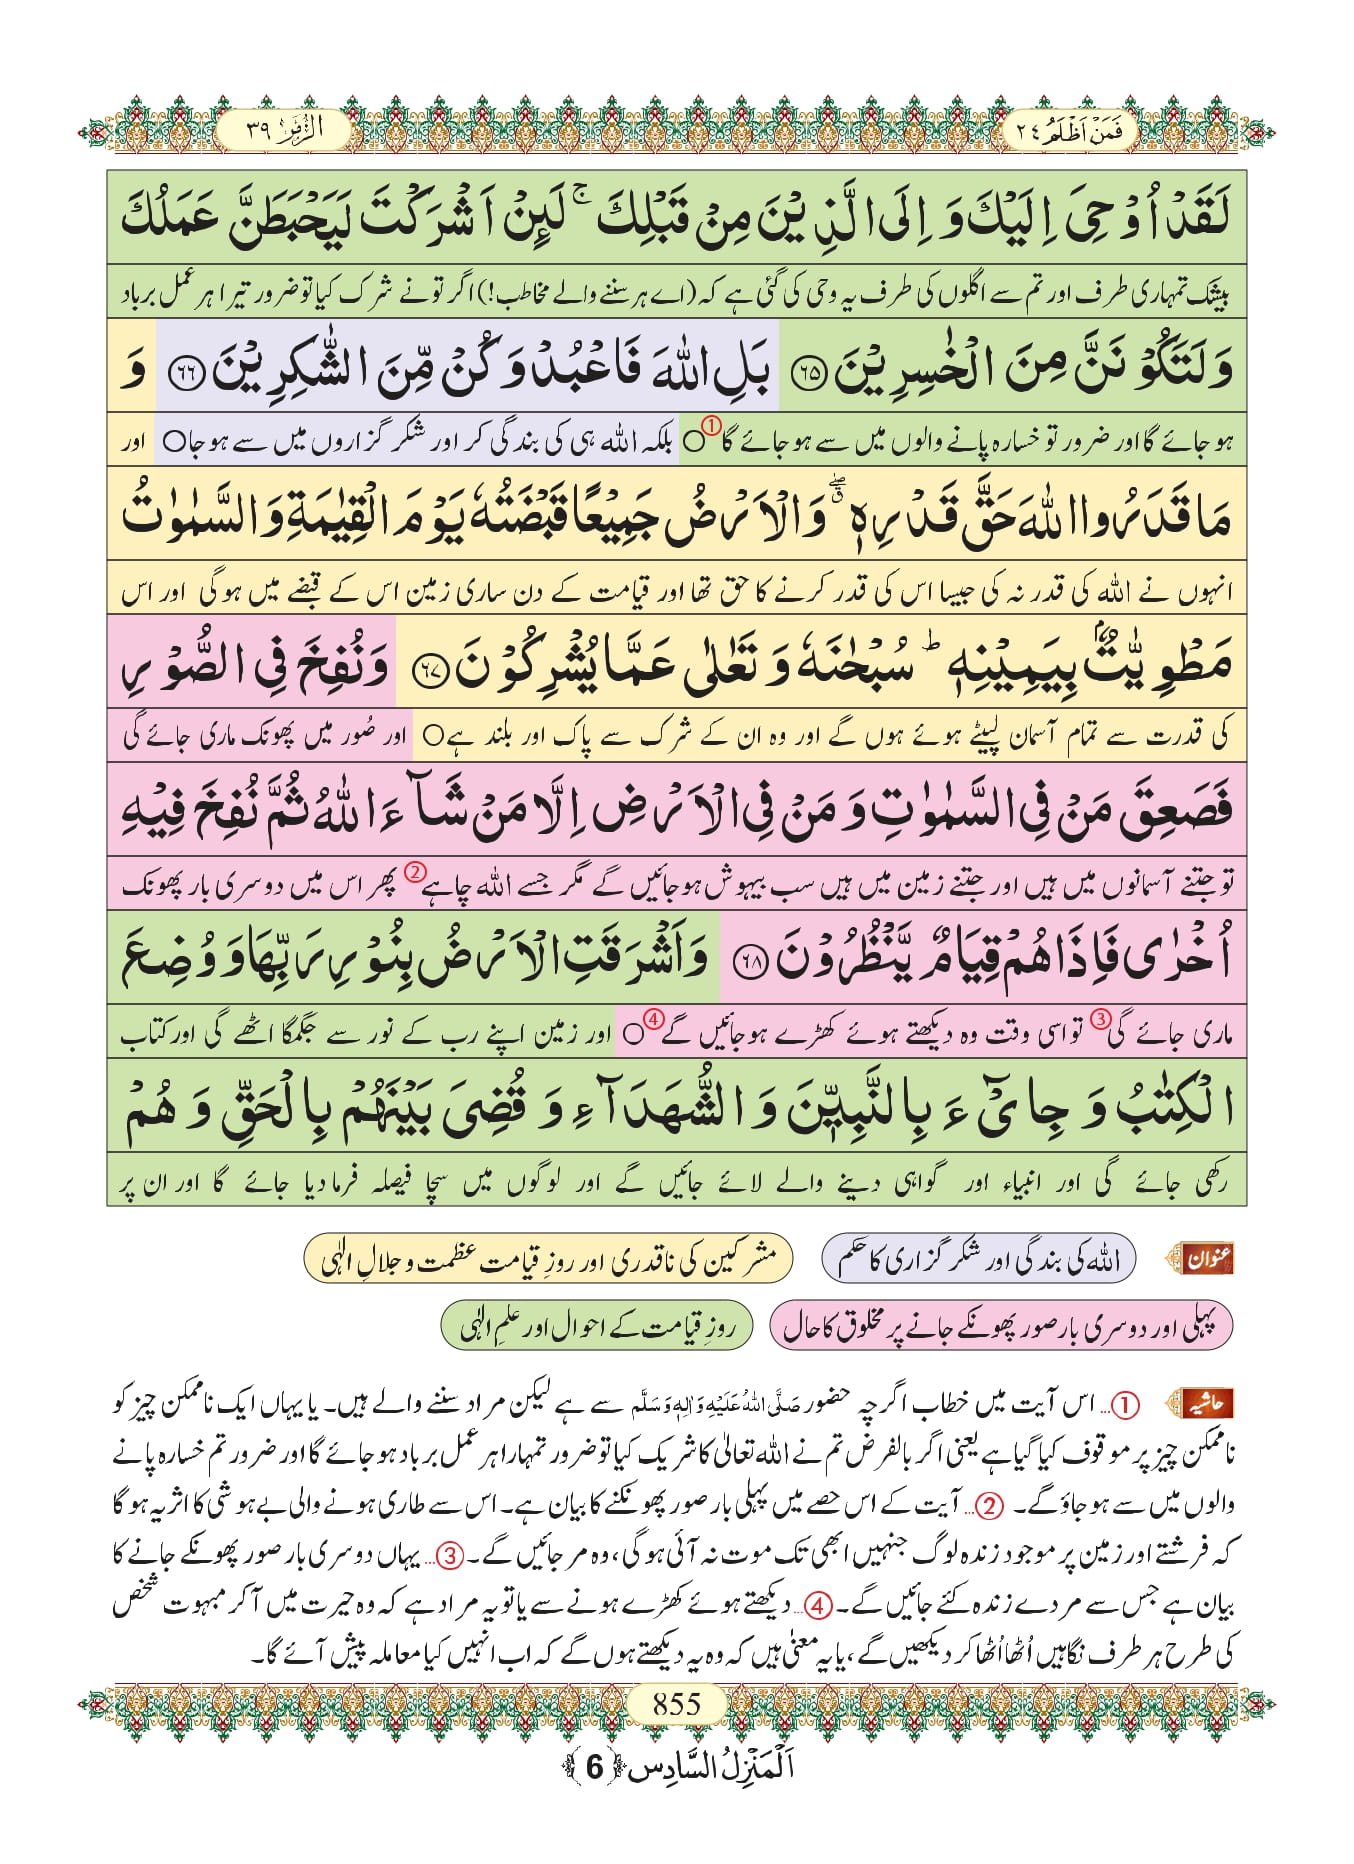 فَمَنْ اَظْلَمُ ٢٤
الزُّمَر ٣٩
لَقَدْ اُوْحِیَ اِلَیْكَ وَ اِلَى الَّذِیْنَ مِنْ قَبْلِكَ ۚ لَىٕنْ اَشْرَكْتَ لَیَحْبَطَنَّ عَمَلُكَ
بیشک تمہاری طرف اور تم سے اگلوں کی طرف یہ وحی کی گئی ہے کہ (اے ہر سننے والے مخاطب!) اگر تو نے شرک کیا تو ضرور تیرا ہر عمل برباد
وَ لَتَكُوْنَنَّ مِنَ الْخٰسِرِیْنَ ﴿۶۵﴾ بَلِ اللّٰهَ فَاعْبُدْ وَ كُنْ مِّنَ الشّٰكِرِیْنَ ﴿۶۶﴾ وَ
ہو جائے گا اور ضرور تو خسارہ پانے والوں میں سے ہو جائے گا①○ بلکہ اللہ ہی کی بندگی کر اور شکر گزاروں میں سے ہو جا○ اور
مَا قَدَرُوا اللّٰهَ حَقَّ قَدْرِهٖ ۖۗ وَ الْاَرْضُ جَمِیْعًا قَبْضَتُهٗ یَوْمَ الْقِیٰمَةِ وَ السَّمٰوٰتُ
انہوں نے اللہ کی قدر نہ کی جیسا اس کی قدر کرنے کا حق تھا اور قیامت کے دن ساری زمین اس کے قبضے میں ہوگی اور اس
مَطْوِیّٰتٌۢ بِیَمِیْنِهٖ ؕ سُبْحٰنَهٗ وَ تَعٰلٰى عَمَّا یُشْرِكُوْنَ ﴿۶۷﴾ وَ نُفِخَ فِی الصُّوْرِ
کی قدرت سے تمام آسمان لپیٹے ہوئے ہوں گے اور وہ ان کے شرک سے پاک اور بلند ہے○ اور صُور میں پھونک ماری جائے گی
فَصَعِقَ مَنْ فِی السَّمٰوٰتِ وَ مَنْ فِی الْاَرْضِ اِلَّا مَنْ شَآءَ اللّٰهُ ثُمَّ نُفِخَ فِیْهِ
تو جتنے آسمانوں میں ہیں اور جتنے زمین میں ہیں سب بیہوش ہو جائیں گے مگر جسے اللہ چاہے② پھر اس میں دوسری بار پھونک
اُخْرٰى فَاِذَا هُمْ قِیَامٌ یَّنْظُرُوْنَ ﴿۶۸﴾ وَ اَشْرَقَتِ الْاَرْضُ بِنُوْرِ رَبِّهَا وَ وُضِعَ
ماری جائے گی③ تو اسی وقت وہ دیکھتے ہوئے کھڑے ہو جائیں گے④○ اور زمین اپنے رب کے نور سے جگمگا اٹھے گی اور کتاب
الْكِتٰبُ وَ جِایْٓءَ بِالنَّبِیّٖنَ وَ الشُّهَدَآءِ وَ قُضِیَ بَیْنَهُمْ بِالْحَقِّ وَ هُمْ
رکھی جائے گی اور انبیاء اور گواہی دینے والے لائے جائیں گے اور لوگوں میں سچا فیصلہ فرما دیا جائے گا اور ان پر
عنوان اللہ کی بندگی اور شکر گزاری کا حکم مشرکین کی ناقدری اور روزِ قیامت عظمت و جلالِ الٰہی
پہلی اور دوسری بار صور پھونکے جانے پر مخلوق کا حال روزِ قیامت کے احوال اور علمِ الٰہی
حاشیہ ①... اس آیت میں خطاب اگرچہ حضور صَلَّی اللہُ عَلَیْہِ وَاٰلِہٖ وَسَلَّم سے ہے لیکن مراد سننے والے ہیں۔ یا یہاں ایک ناممکن چیز کو
ناممکن چیز پر موقوف کیا گیا ہے یعنی اگر بالفرض تم نے اللہ تعالیٰ کا شریک کیا تو ضرور تمہارا ہر عمل برباد ہو جائے گا اور ضرور تم خسارہ پانے
والوں میں سے ہو جاؤ گے۔ ②... آیت کے اس حصے میں پہلی بار صور پھونکنے کا بیان ہے۔ اس سے طاری ہونے والی بے ہوشی کا اثر یہ ہوگا
کہ فرشتے اور زمین پر موجود زندہ لوگ جنہیں ابھی تک موت نہ آئی ہوگی، وہ مر جائیں گے۔ ③... یہاں دوسری بار صور پھونکے جانے کا
بیان ہے جس سے مردے زندہ کئے جائیں گے۔ ④... دیکھتے ہوئے کھڑے ہونے سے یا تو یہ مراد ہے کہ وہ حیرت میں آکر مبہوت شخص
کی طرح ہر طرف نگاہیں اُٹھا اُٹھا کر دیکھیں گے، یا یہ معنیٰ ہیں کہ وہ یہ دیکھتے ہوں گے کہ اب انہیں کیا معاملہ پیش آئے گا۔
855
اَلْمَنْزِلُ السَّادِس ﴿6﴾